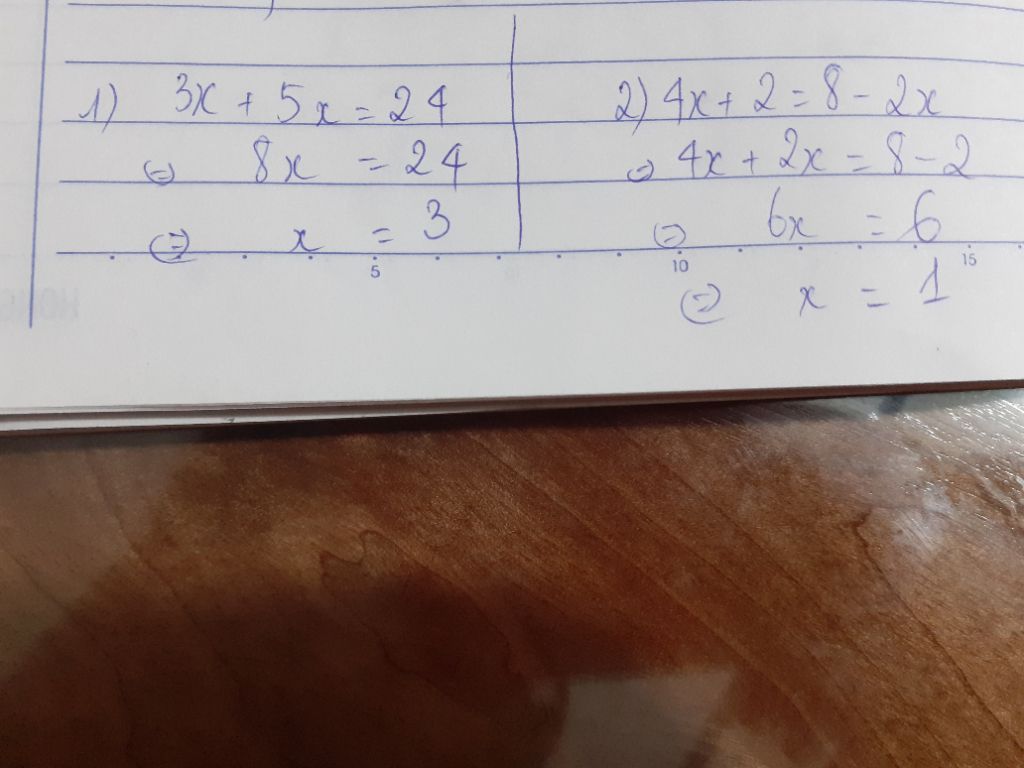 1) 3x + 5x = 24
⇔ 8x = 24
⇔ x = 3
2) 4x + 2 = 8 - 2x
⇔ 4x + 2x = 8 - 2
⇔ 6x = 6
⇔ x = 1
5 10 15